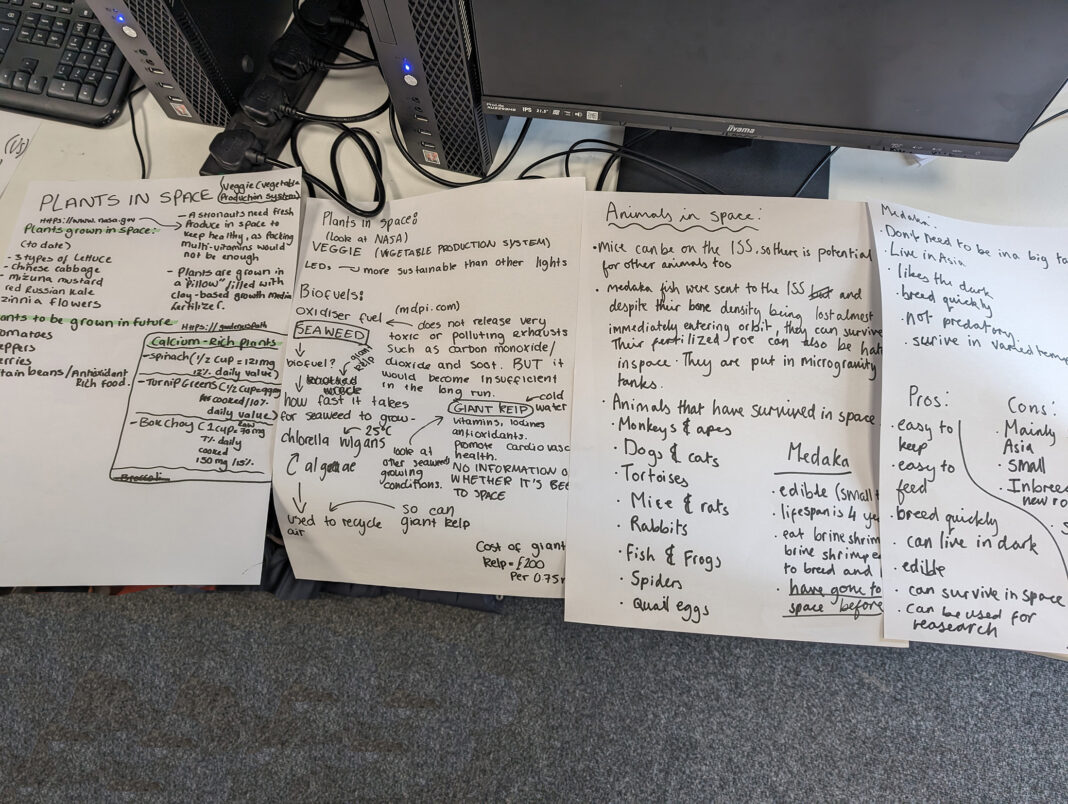 PLANTS IN SPACE (Veggie (vegetable
Production System)
https://www.nasa.gov
Plants grown in space:
(to date)
- 3 types of Lettuce
- Chinese cabbage
- mizuna mustard
red Russian Kale
zinnia flowers
- Astronauts need fresh
Produce in space to
keep healthy, as packing
multi-vitamins would
not be enough
- Plants are grown in
a "pillow" filled with
clay-based growth media
& fertilizer.
ants to be grown in future
omatoes
eppers
erries
tain beans/Antioxidant
Rich food.
Calcium-Rich plants
- spinach (1/2 cup = 121mg
12% daily value)
- Turnip Greens (1/2 cup =
cooked/10%
daily value)
- Bok Choy (1 cup = 70mg
7% daily
cooked
150 mg / 15%
Broccoli
Plants in space:
(look at NASA)
VEGGIE (VEGETABLE PRODUCTION SYSTEM)
LEDs more sustainable than other lights
Biofuels:
Oxidiser fuel (mdpi.com)
SEAWEED
does not release very
toxic or polluting exhausts
such as carbon monoxide/
dioxide and soot. BUT it
would become insufficient
in the long run.
biofuel?
giant kelp
how fast it takes
for seaweed to grow-
25°C
chlorella vulgaris
algae
used to recycle
air
so can
giant kelp
look at
other seaweed
growing
conditions.
GIANT KELP
cold
water
vitamins, iodines
antioxidants.
Promote cardiovasc
health.
NO INFORMATION O
WHETHER IT'S BEE
TO SPACE
Cost of giant
Kelp = £200
Per 0.75
Animals in space:
· Mice can be on the ISS, so there is potential
for other animals too
· medaka fish were sent to the ISS but and
despite their bone density being lost almost
immediately entering orbit, they can survive
Their fertilized roe can also be hat
in space. They are put in microgravity
tanks.
· Animals that have survived in space
· Monkeys & apes
· Dogs & cats
· Tortoises
· Mice & rats
· Rabbits
· Fish & Frogs
· Spiders
· Quail eggs
Medaka
· edible (small
· lifespan is 4 ye
· eat brine shrim
brine shrimp
to breed and
· have gone to
space before
Medaka:
· Don't need to be in a big ta
· Live in Asia
· likes the dark
· breed quickly
· not predatory
· surive in varied temp
Pros:
· easy to
keep
· easy to
feed
· breed quickly
· can live in dark
· edible
· can survive in space
· can be used for
reasearch
Cons:
· Mainly
Asia
· Small
· Inbree
new ro
iiyama
IPS 21.5"